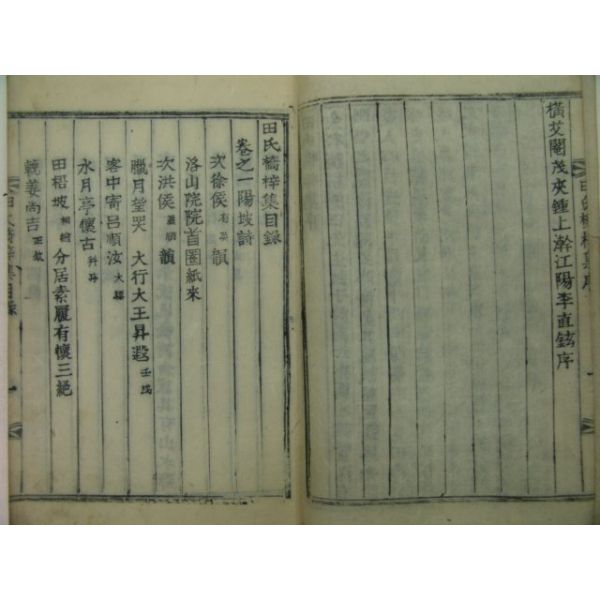 橫艾閹茂夾鍾上澣江陽李直鉉序
田氏橋梓集目錄
卷之一陽坡詩
次徐侯韻
洛山院院首圈紙來
次洪侯韻
臘月望哭 大行大王昇遐壬戌
客中寄呂順汝大驛
水月亭懷古
田梧坡 分居素履有懷三絕
輓姜尚吉